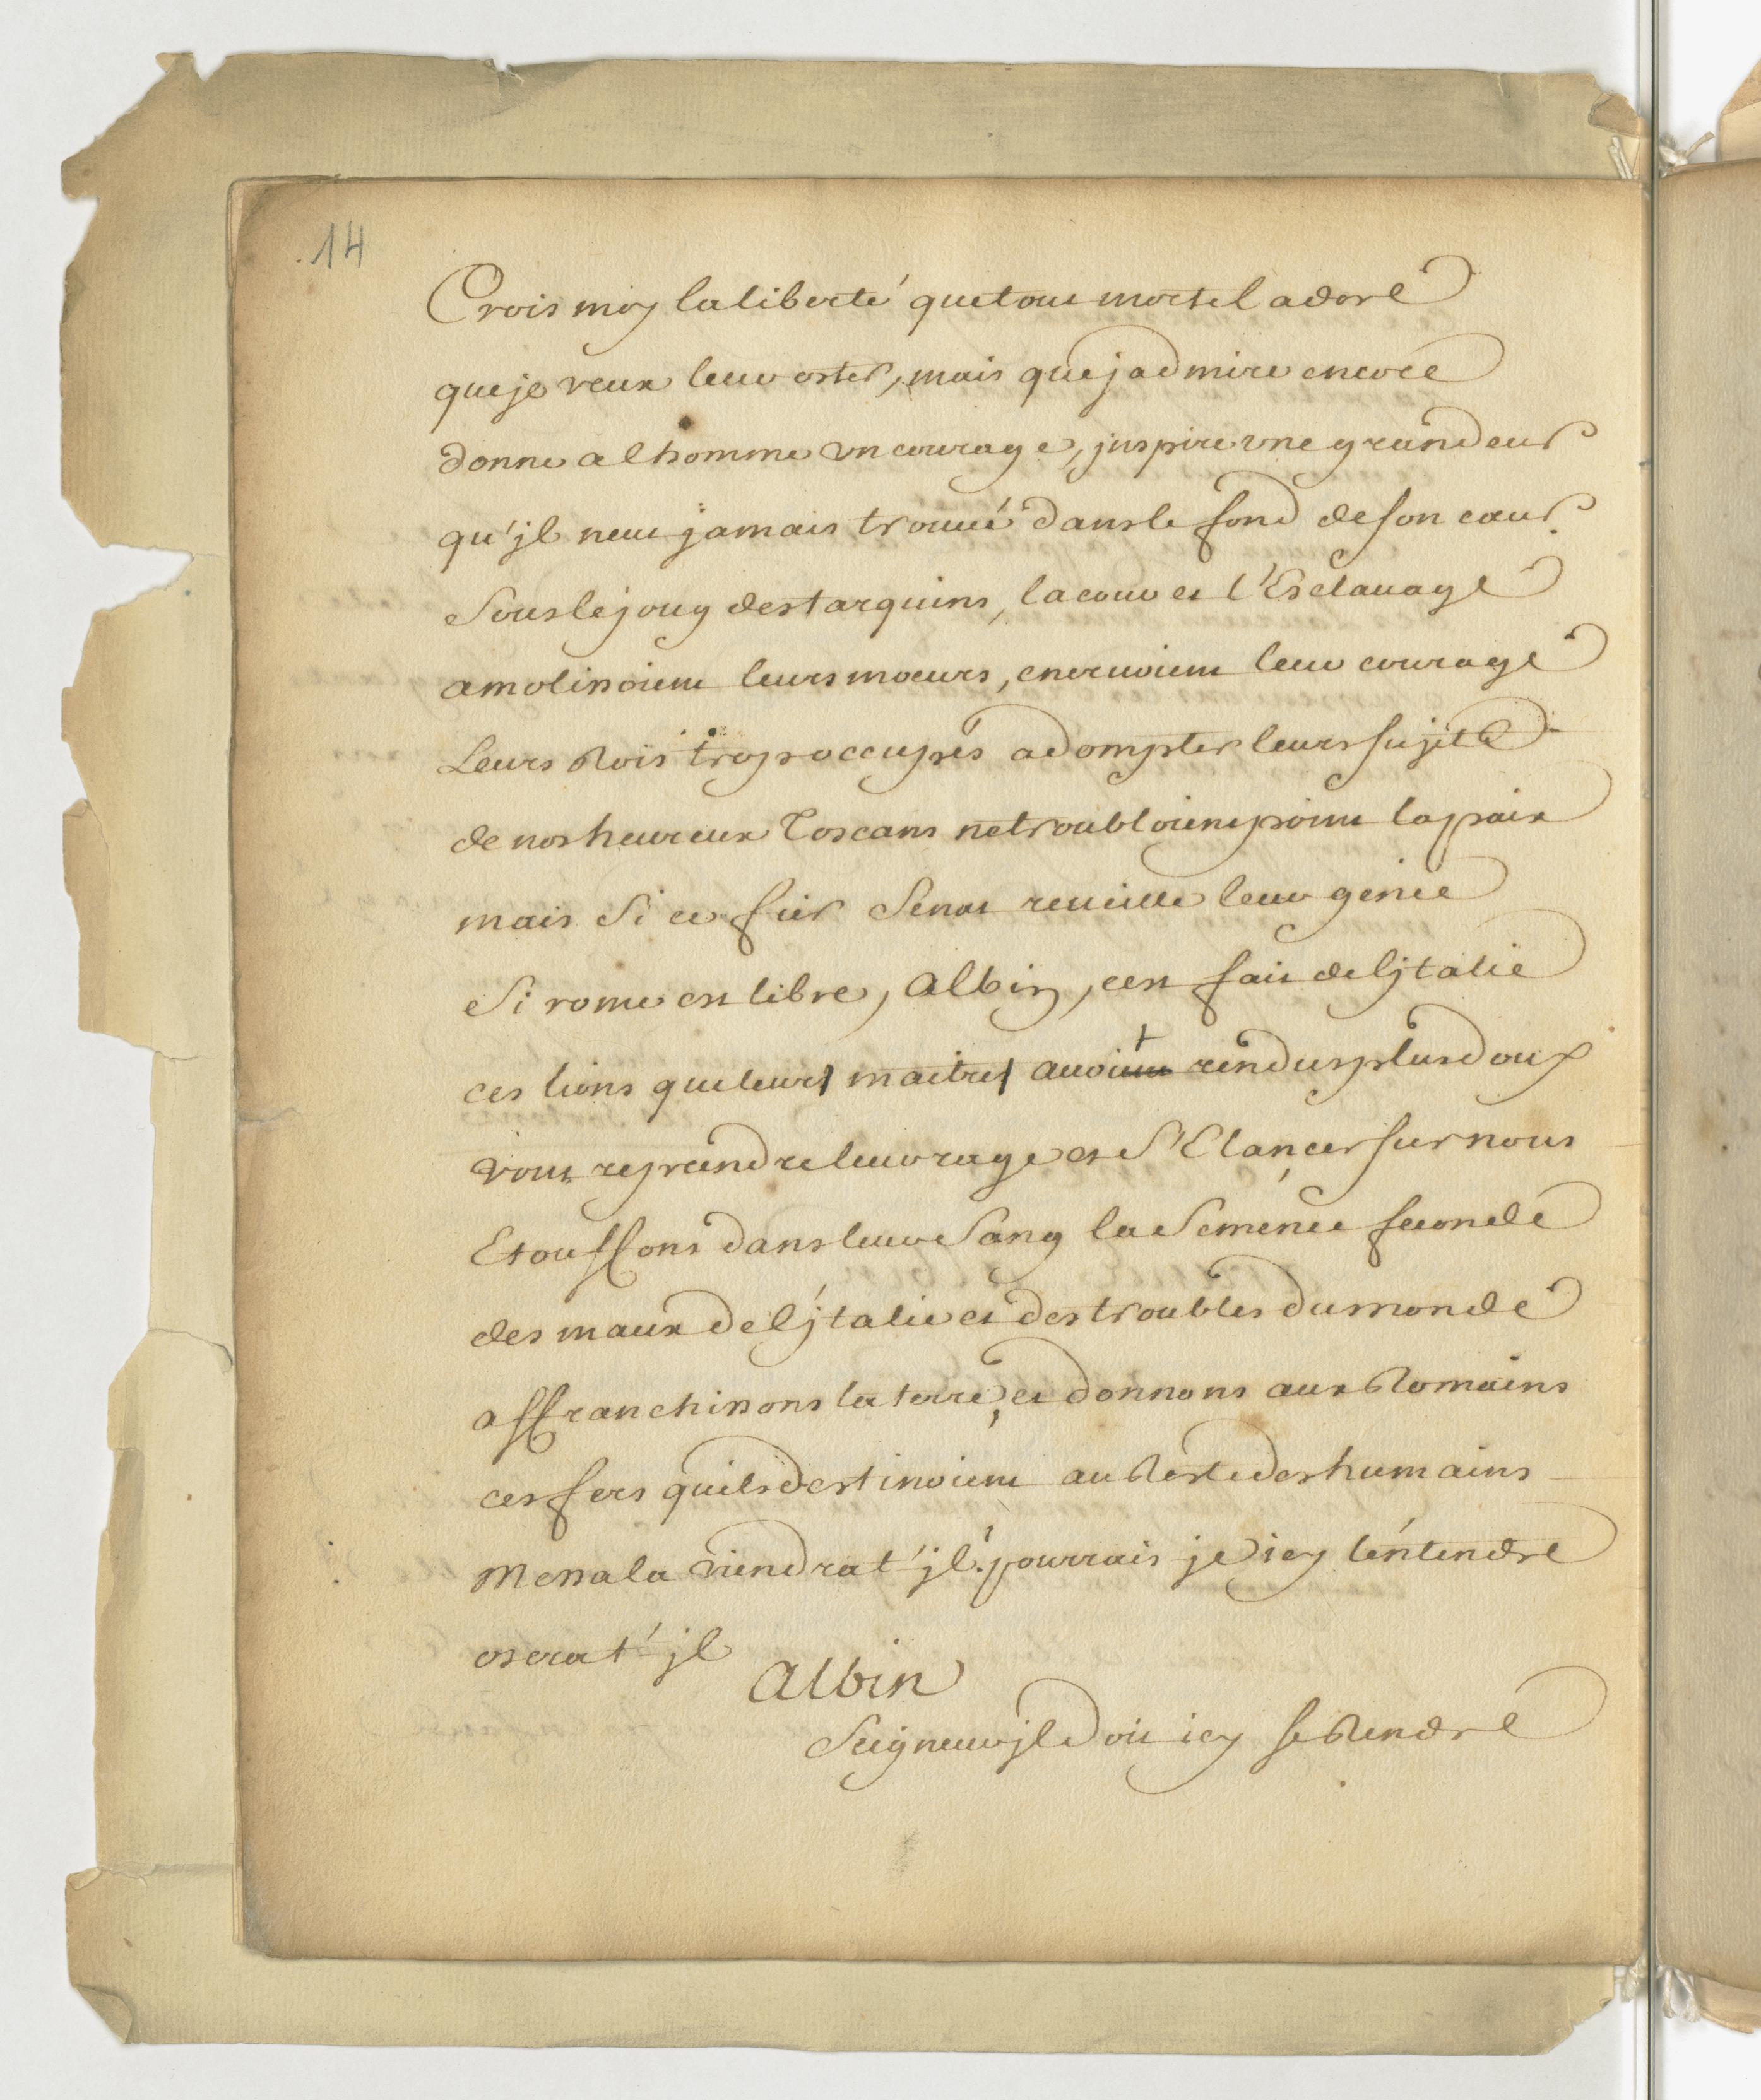 14
Crois moy la liberté que tout mortel adore
que je veux leur oster, mais que j admire encore
donne a l homme un courage, jnspire une grandeur
qu'jl neut jamais trouué dans le fond de son cœur.
Sous le joug des tarquins, la cour et l'Esclauage
amolissoient leurs moeurs, eneruoient leur courage
Leurs Rois trop occupés a dompter leurs sujets
de nos heureux Toscans ne troubloient point la paix
mais Si ce fier Senat reueille leur genie
Si rome est libre, Albin, cest fait de ljtalie
ces lions que leurs maitres auoient rendus plus doux
vont reprendre leur rage et S'Elançer sur nous
Etouffons dans leur Sang la Semence feconde
des maux de l'jtalie et des troubles du monde
affranchissons la terre, et donnons aux Romains
ces fers quils destinoient au Reste des humains
Messala viendrat'jl? pourrais je icy l'entendre
oserat'jl
Albin
Seigneur jl doit icy se Rendre